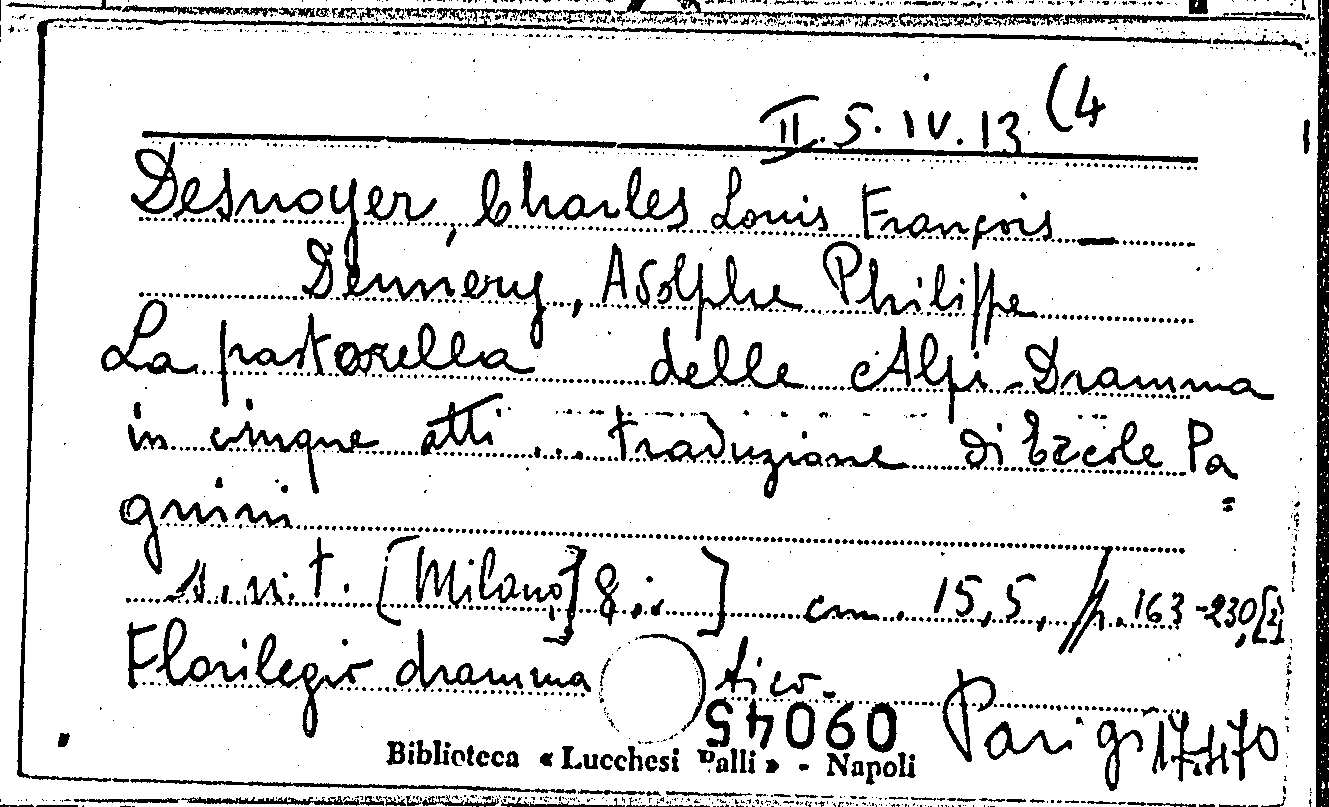 II.5.IV.13 (4
Desnoyer, Charles Louis François _
Dennery, Adolphe Philippe
La pastorella delle Alpi - Dramma
in cinque atti ... traduzione di Ercole Pa
=
gnini
s.n.t. [Milano] 8.: ] cm. 15,5, pp. 163-230,[2]
Florilegio dramma tico.
09045 Parigi
Biblioteca « Lucchesi Palli » - Napoli